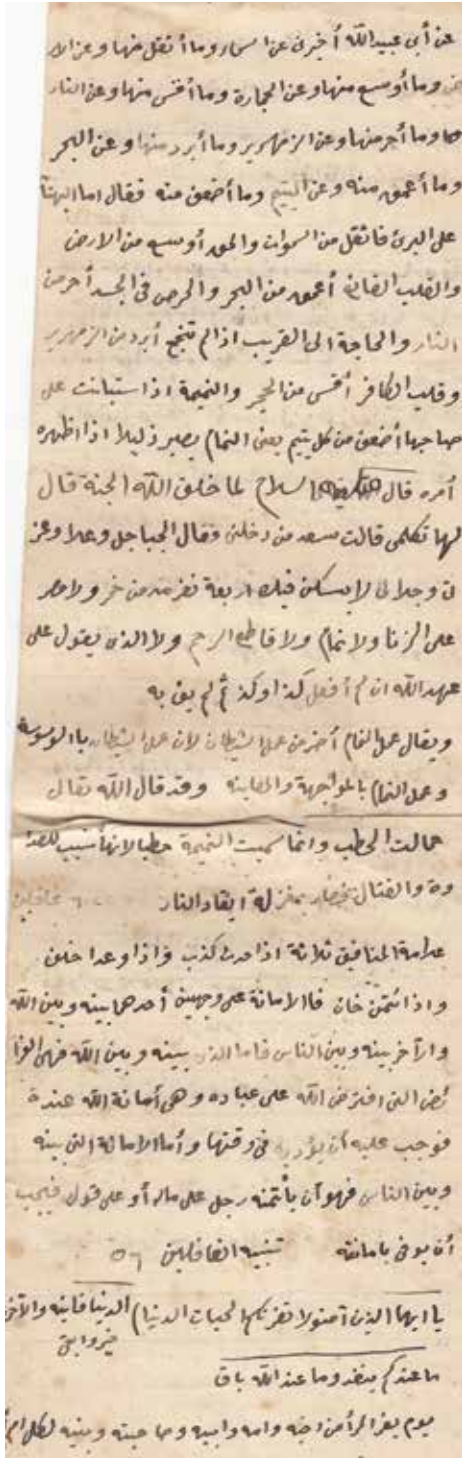 عن أبى عبيد الله أخبرنى عن السماء وما أثقل منها وعن الار
ض وما أوسع منها وعن الحجارة وما أقسى منها وعن النار
وما أحر منها وعن الزمهرير وما أبرد منها وعن البحر
وما أعمق منه وعن اليتيم وما أضعف منه فقال اما البهتا
على البرئ فاثقل من السموات والحق أوسع من الارض
والقلب القانع أعمق من البحر والحرص فى الجسد أحر من
النار والحاجة الى القريب اذا لم تنجح أبرد من الزمهرير
وقلب الكافر أقسى من الحجر والنميمة اذا استبانت على
صاحبها أضعف من كل يتيم يعنى النمام يصير ذليلا اذا اظهره
أمره قال السلام لما خلق الله الجنة قال
لها تكلمى قالت سعد من دخلنى وقال الجبا جل وعلا وعز
تى وجلا لى لا يسكن فيك اربعة نفر مدمن خمر ولا مصر
على الزنا ولا نمام ولا قاطع الرحم ولا الذى يقول على
عهد الله ان لم أفعل كذا وكذ ثم لم يف به
ويقال عمل النمام أضر من عمل الشيطان لان عمل الشيطان باالوسوسة
وعمل النمام بالمواجهة والمعاينة وقد قال الله تعالى
حمالت الحطب وانما سميت النميمة حطبا لانها سبب للعدا
وة والقتال فصار بمنزلة ايقاد النار غافلين
علامة المنافق ثلاثة اذا حدث كذب واذا وعدا خلف
واذا ئتمن خان فاالامانة على وجهين أحدهما بينه وبين الله
والآخر بينه وبين الناس فاما الذى بينه وبين الله فهى الفرا
ئض التى افترض الله على عباده وهى أمانة الله عنده
فوجب عليه أن يؤديها فى وقتها وأما الامانة التى بينه
وبين الناس فهو أن يأتمنه رجل على ماله أو على قول فيجب
أن يوفى بامانته تنبيه الغافلين ٥٦
يا ايها الذين آمنو لا تغرنكم الحيات الدنيا) الدنيا فاينه والآخر
خير وابقى
ما عندكم ينفد وما عند الله باق
يوم يفر المرأ من اخه وامه وابيه وصاحبته وبنيه لكل ام